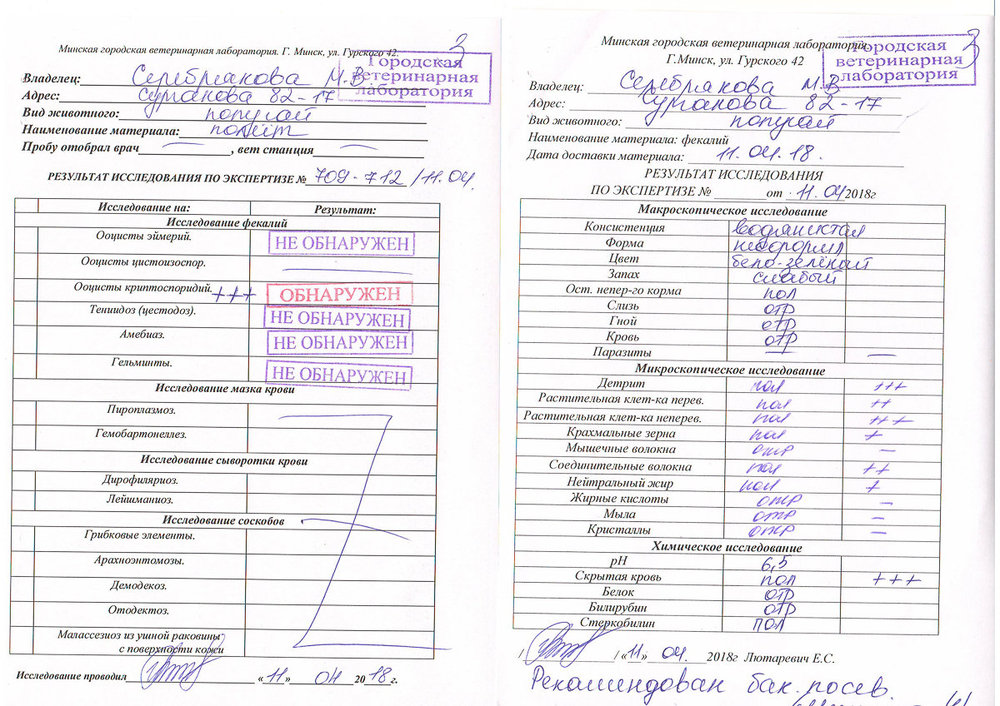 Минская городская ветеринарная лаборатория. Г. Минск, ул. Гурского 42.
3
Городская
ветеринарная
лаборатория
Владелец: Серебрякова М.В.
Адрес: Сурганова 82-17
Вид животного: попугай
Наименование материала: помёт
Пробу отобрал врач , вет станция
РЕЗУЛЬТАТ ИССЛЕДОВАНИЯ ПО ЭКСПЕРТИЗЕ № 709-712/11.04.
Исследование на: Результат:
Исследование фекалий
Ооцисты эймерий. НЕ ОБНАРУЖЕН
Ооцисты цистоизоспор.
Ооцисты криптоспоридий. +++ ОБНАРУЖЕН
Тениидоз (цестодоз). НЕ ОБНАРУЖЕН
Амебиаз. НЕ ОБНАРУЖЕН
Гельминты. НЕ ОБНАРУЖЕН
Исследование мазка крови
Пироплазмоз.
Гемобартонеллез.
Исследование сыворотки крови
Дирофиляриоз.
Лейшманиоз.
Исследование соскобов
Грибковые элементы.
Арахноэнтомозы.
Демодекоз.
Отодектоз.
Малассезиоз из ушной раковины
с поверхности кожи
Исследование проводил «11» 04 2018г.
Минская городская ветеринарная лаборатория
Г.Минск, ул. Гурского 42
3
Городская
ветеринарная
лаборатория
Владелец: Серебрякова М.В
Адрес: Сурганова 82-17
Вид животного: попугай
Наименование материала: фекалий
Дата доставки материала: 11.04.18.
РЕЗУЛЬТАТ ИССЛЕДОВАНИЯ
ПО ЭКСПЕРТИЗЕ № от 11.04 2018г
Макроскопическое исследование
Консистенция водянистая
Форма неоформл
Цвет бело-зелёный
Запах слабый
Ост. непер-го корма пол
Слизь отр
Гной отр
Кровь отр
Паразиты — —
Микроскопическое исследование
Детрит пол +++
Растительная клет-ка перев. пол ++
Растительная клет-ка неперев. пол +++
Крахмальные зерна пол +
Мышечные волокна отр —
Соединительные волокна пол ++
Нейтральный жир пол +
Жирные кислоты отр —
Мыла отр —
Кристаллы отр —
Химическое исследование
pH 6,5
Скрытая кровь пол +++
Белок отр
Билирубин отр
Стеркобилин пол
/ / «11» 04. 2018г Лютаревич Е.С.
Рекомендован бак. посев.